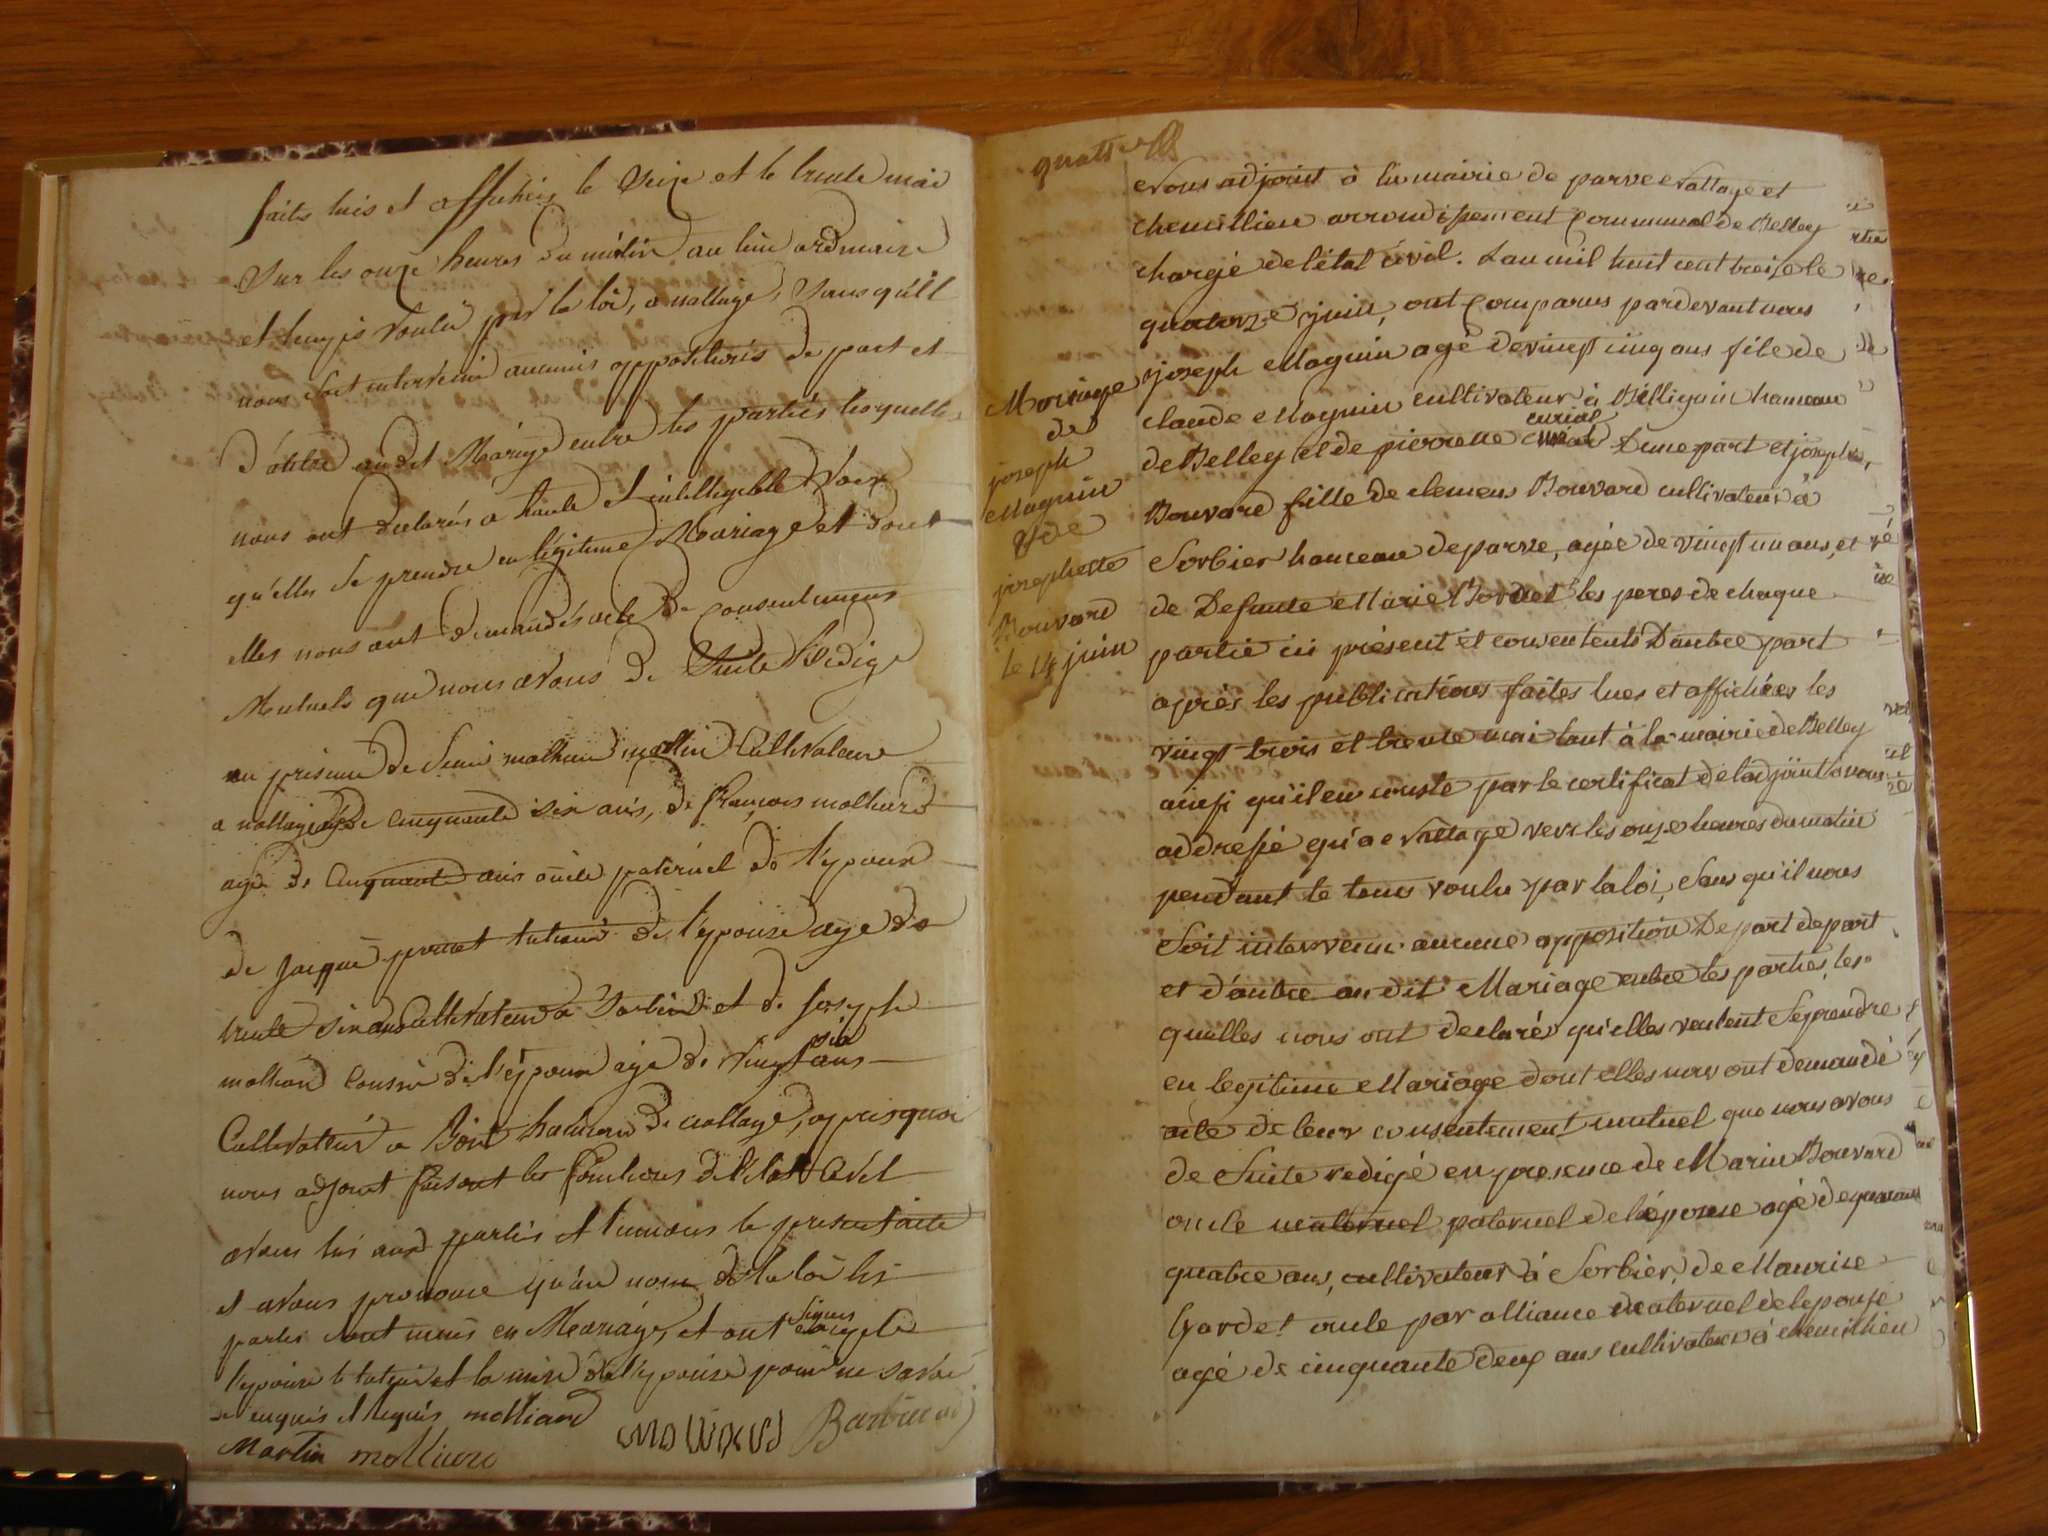 faites lues et affichées le seize et le trente mai
sur les onze heures du matin au lieu ordinaire
et temps voulu par la loi, a nattage, sans qu'il
nous soit intervenu aucunes oppositions de part et
d'autre audit Mariage entre les parties lesquelles
nous ont declarés a haute et intelligible voix
qu'elles se prendre en légitime Mariage et dont
elles nous ont demandés acte de consentemens
Mutuels que nous avons de suite Redigé
en présence de mathieu Cultivateur
a nattage agé de cinquante six ans, de françois
agé de cinquante ans oncle paternel de l'epoux
de jacque tuteur de l'epouse age de
trente six ans Cultivateur a Sorbier et de Joseph
molliard cousin de l'epoux agé de vingt six ans
Cultivateur a hameau de nattage, apres quoi
nous adjoint faisant les fonctions de l'etat Civil
avons lus aux parties et temoins le present acte
et avons prononcé qu'au nom de la loi les
parties sont unis en Mariage, et ont signés excepté
l'epouse le tuteur et la mère de l'epouse pour ne savoir
de enquis et requis molliard
Martin molliard
quatre
Mariage
de
joseph
Magnin
& de
josephette
Bouvard
le 14 juin
Nous adjoint à la mairie de parve nattage et
chemillieu arrondissement communal de Belley
chargé de l'état civil. L'an mil huit cent treize le
quatorze juin, ont comparus pardevant nous
joseph Magnin agé de vingt cinq ans fils de
claude Magnin cultivateur à Billignin hameau
de Belley et de pierrette curial D'une part et josephte
Bouvard fille de clemens Bouvard cultivateur à
Sorbier hameau de parve, agée de vingt un ans, et
de Defunte Marie les peres de chaque
partie ici présent et consentents D'autre part
après les publications faites lues et affichées les
vingt trois et trente mai tant à la mairie de Belley
ainsi qu'il en conste par le certificat de l'adjoint à nous
addressé qu'a nattage vers les onze heures du matin
pendant le tems voulu par la loi, Sans qu'il nous
Soit intervenu aucune opposition De part de part
et d'autre au dit Mariage entre les parties, les
quelles nous ont declaré qu'elles veulent Se prendre
en legitime Mariage dont elles nous ont demandé
acte de leur consentement mutuel que nous avons
de Suite redigé en presence de Marin Bouvard
oncle paternel de l'épouse agé de quarante
quatre ans, cultivateur à Sorbier, de Maurice
Gardet oncle par alliance maternel de l'epouse
agé de cinquante deux ans cultivateur à chemillieu